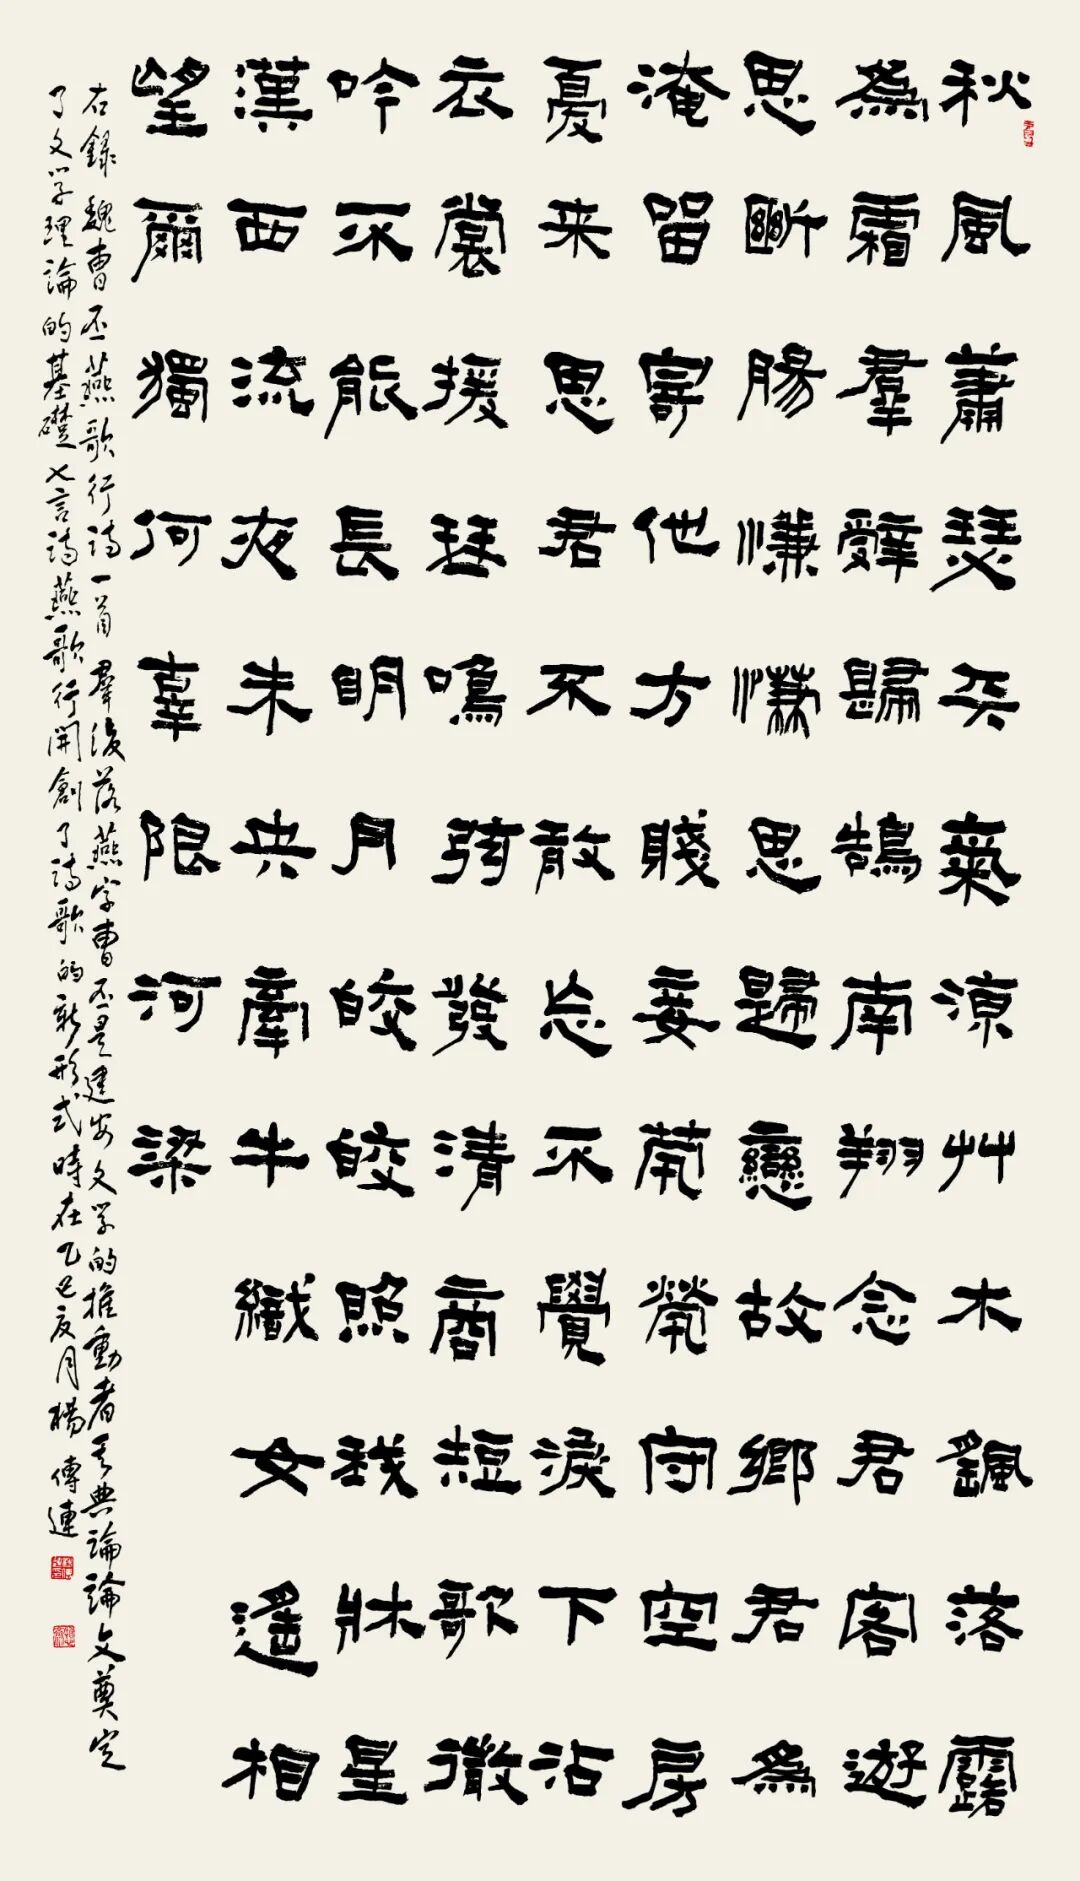 秋風蕭瑟天氣涼艸木飄落露
為霜羣辭歸鵠南翔念君客遊
思斷腸慊慊思歸戀故鄉君為
淹留寄他方賤妾煢煢守空房
憂来思君不敢忘不覺淚下沾
衣裳援琴鳴弦發清商短歌微
吟不能長明月皎皎照我牀星
漢西流夜未央牽牛織女遙相
望爾獨何辜限河梁
右録魏曹丕燕歌行詩一首羣後落燕字曹丕是建安文学的推動者其典論論文奠定
了文学理論的基礎七言詩燕歌行開創了詩歌的新形式時在乙巳夏月楊傳連